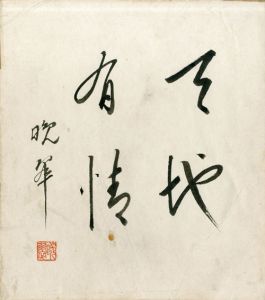 天地
有情
晩翠